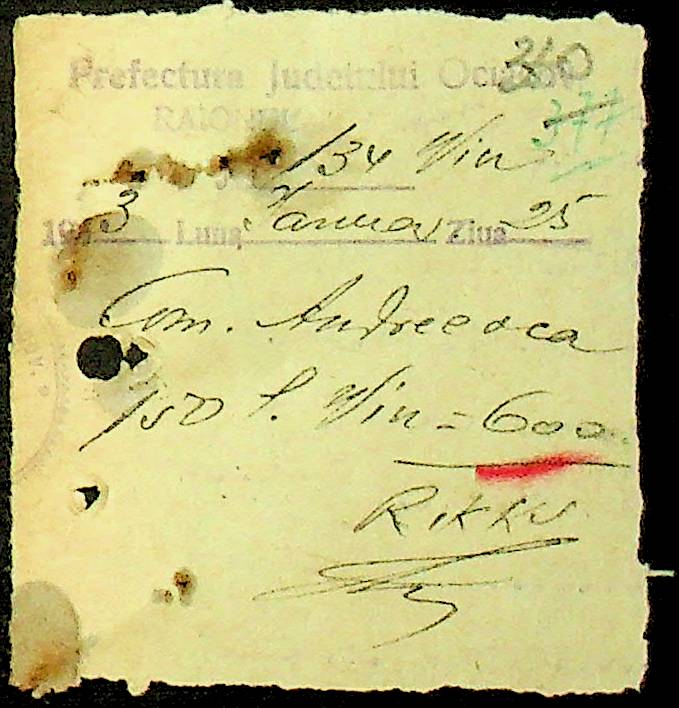 340
Prefectura Judetului
RAIONUL
377
134 Vin
1943 Luna Januar Ziua 25
Com. Andreeasca
150 l. Vin = 600